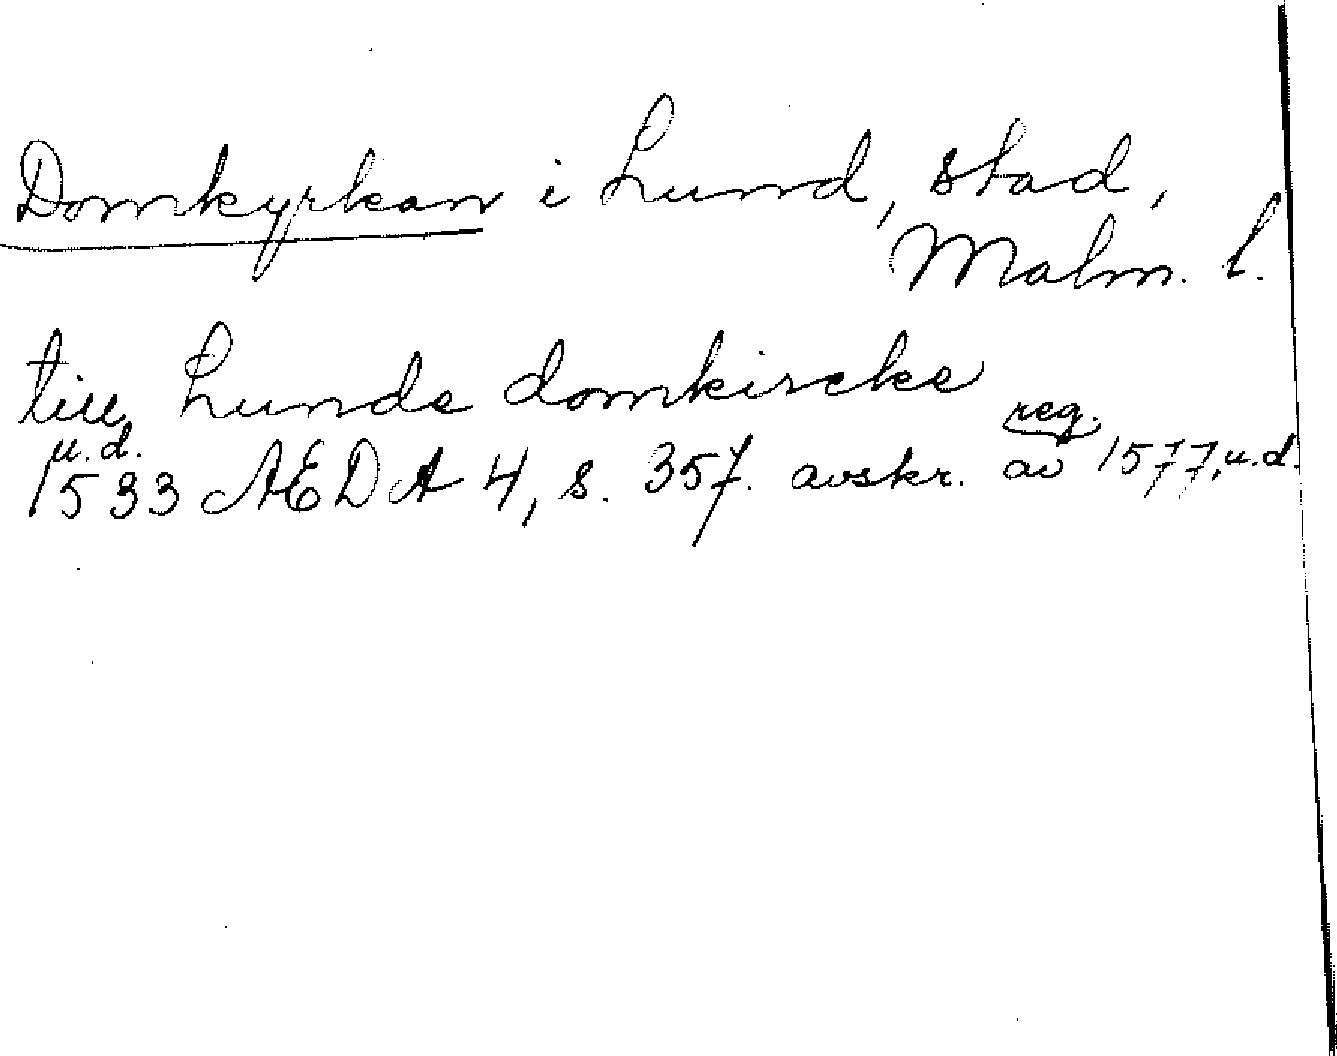 Domkyrkan i Lund, stad,
Malm. l.
till Lunde domkircke
u.d. reg.
1533 AEDA 4, s. 357. avskr. av 1577, u.d.